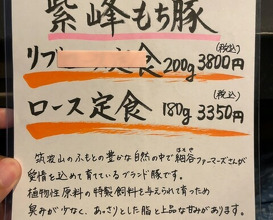 紫峰もち豚
リブ 定食 200g 3800円
(税込)
ロース定食 180g 3350円
(税込)
筑波山のふもとの豊かな自然の中で細谷ファーマーズさんが
愛情を込めて育てているブランド豚です。
植物性原料の特製飼料を与えられて育つため
臭みが少なく、あっさりとした脂と上品な甘みがあります。